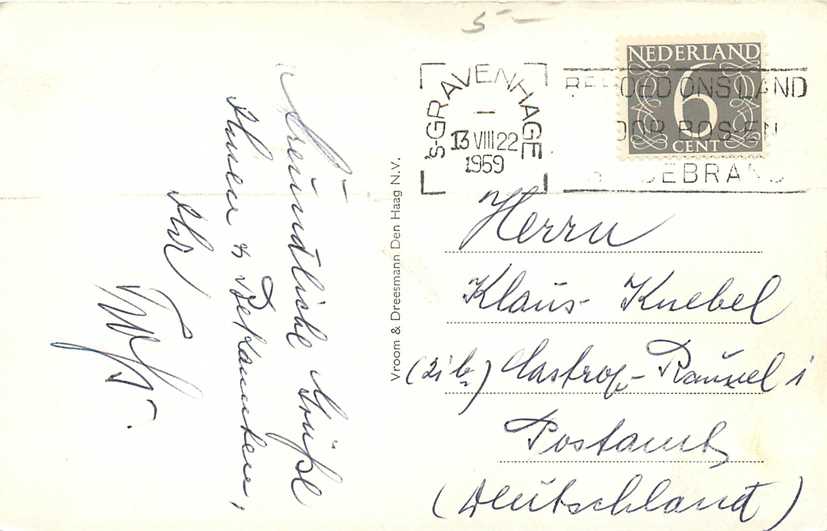 5-
NEDERLAND
6
CENT
'S-GRAVENHAGE
13 VIII 22
1959
BEHOED ONS LAND
VOOR BOS-EN
BRAND
Freundliche Grüße
Ihnen & Bekannten,
Ihr
Vroom & Dreesmann Den Haag N.V.
Herrn
Klaus Knebel
Castrop-Rauxel i
Postamt
(Deutschland)